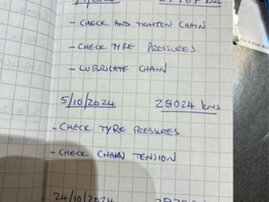 - CHECK AND TIGHTEN CHAIN
- CHECK TYRE PRESSURES.
- LUBRICATE CHAIN
5/10/2024 28024 KMS
- CHECK TYRE PRESSURES
- CHECK CHAIN TENSION
24/10/2024